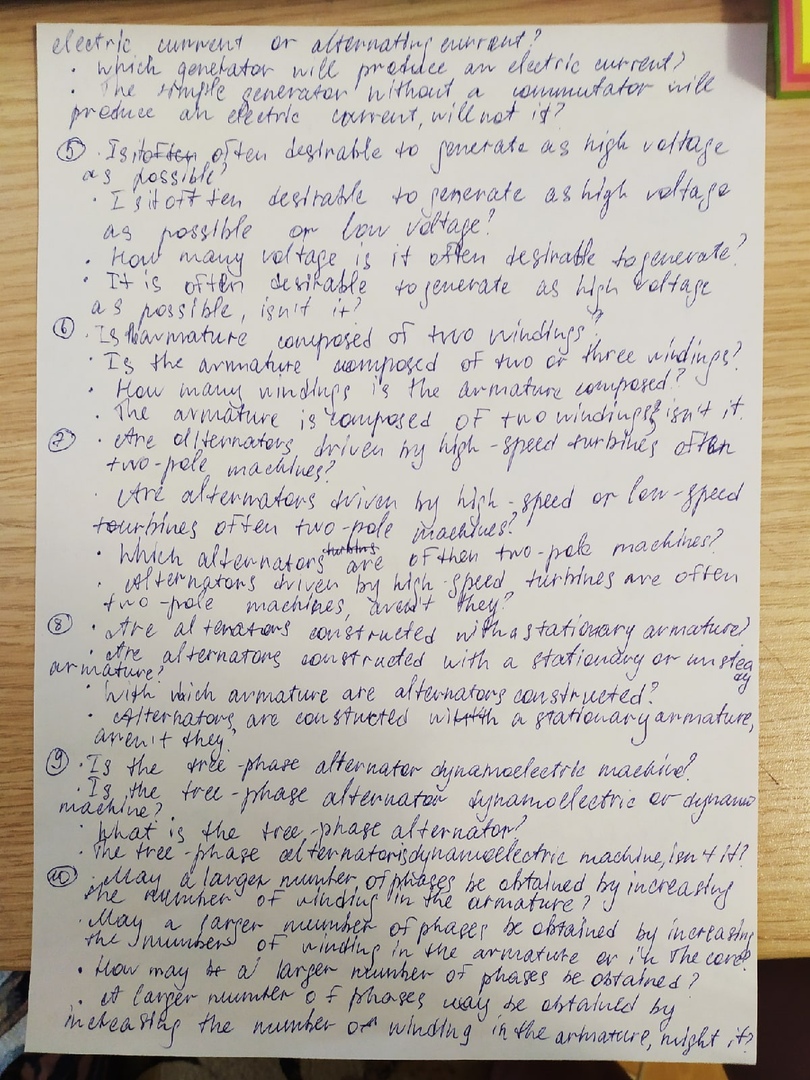 electric current or alternating current?
· Which generator will produce an electric current?
· The simple generator without a commutator will
produce an electric current, will not it?
5 · Is it often desirable to generate as high voltage
as possible?
· Is it oft ten desirable to generate as high voltage
as possible or low voltage?
· How many voltage is it often desirable to generate?
· It is often desirable to generate as high voltage
as possible, isn't it?
6 · Is armature composed of two windings?
· Is the armature composed of two or three windings?
· How many windings is the armature composed?
· The armature is composed of two windings, isn't it.
7 · Are alternators driven by high-speed turbines often
two-pole machines?
· Are alternators driven by high-speed or low-speed
tourbines often two-pole machines?
· Which alternators are ofthen two-pole machines?
· Alternators driven by high-speed turbines are often
two-pole machines, aren't they?
8 · Are alternators constructed with a stationary armature?
· Are alternators constructed with a stationary or unsteady
armature?
· With which armature are alternators constructed?
· Alternators are constucted with a stationary armature,
aren't they?
9 · Is the tree-phase alternator dynamoelectric machine?
· Is the tree-phase alternator dynamoelectric or dynamo
machine?
· What is the tree-phase alternator?
· The tree-phase alternator is dynamoelectric machine, isn't it?
10 · May a larger number of phases be obtained by increasing
the number of winding in the armature?
· May a larger number of phases be obtained by increasing
the number of winding in the armature or in the core?
· How may a larger number of phases be obtained?
· A larger number of phases may be obtained by
increasing the number of winding in the armature, might it?